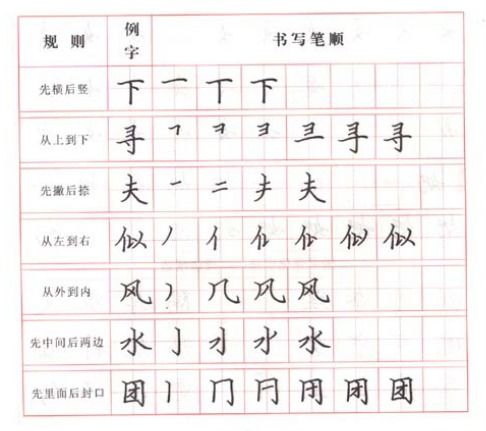 规则 例字 书写笔顺
先横后竖 下 一 丅 下
从上到下 寻 ㇕ コ ヨ 彐 寻 寻
先撇后捺 夫 一 二 夫
从左到右 似 丿 亻 似 似
从外到内 风 丿 几 风 风
先中间后两边 水 亅 水
先里面后封口 团 丨 冂 团